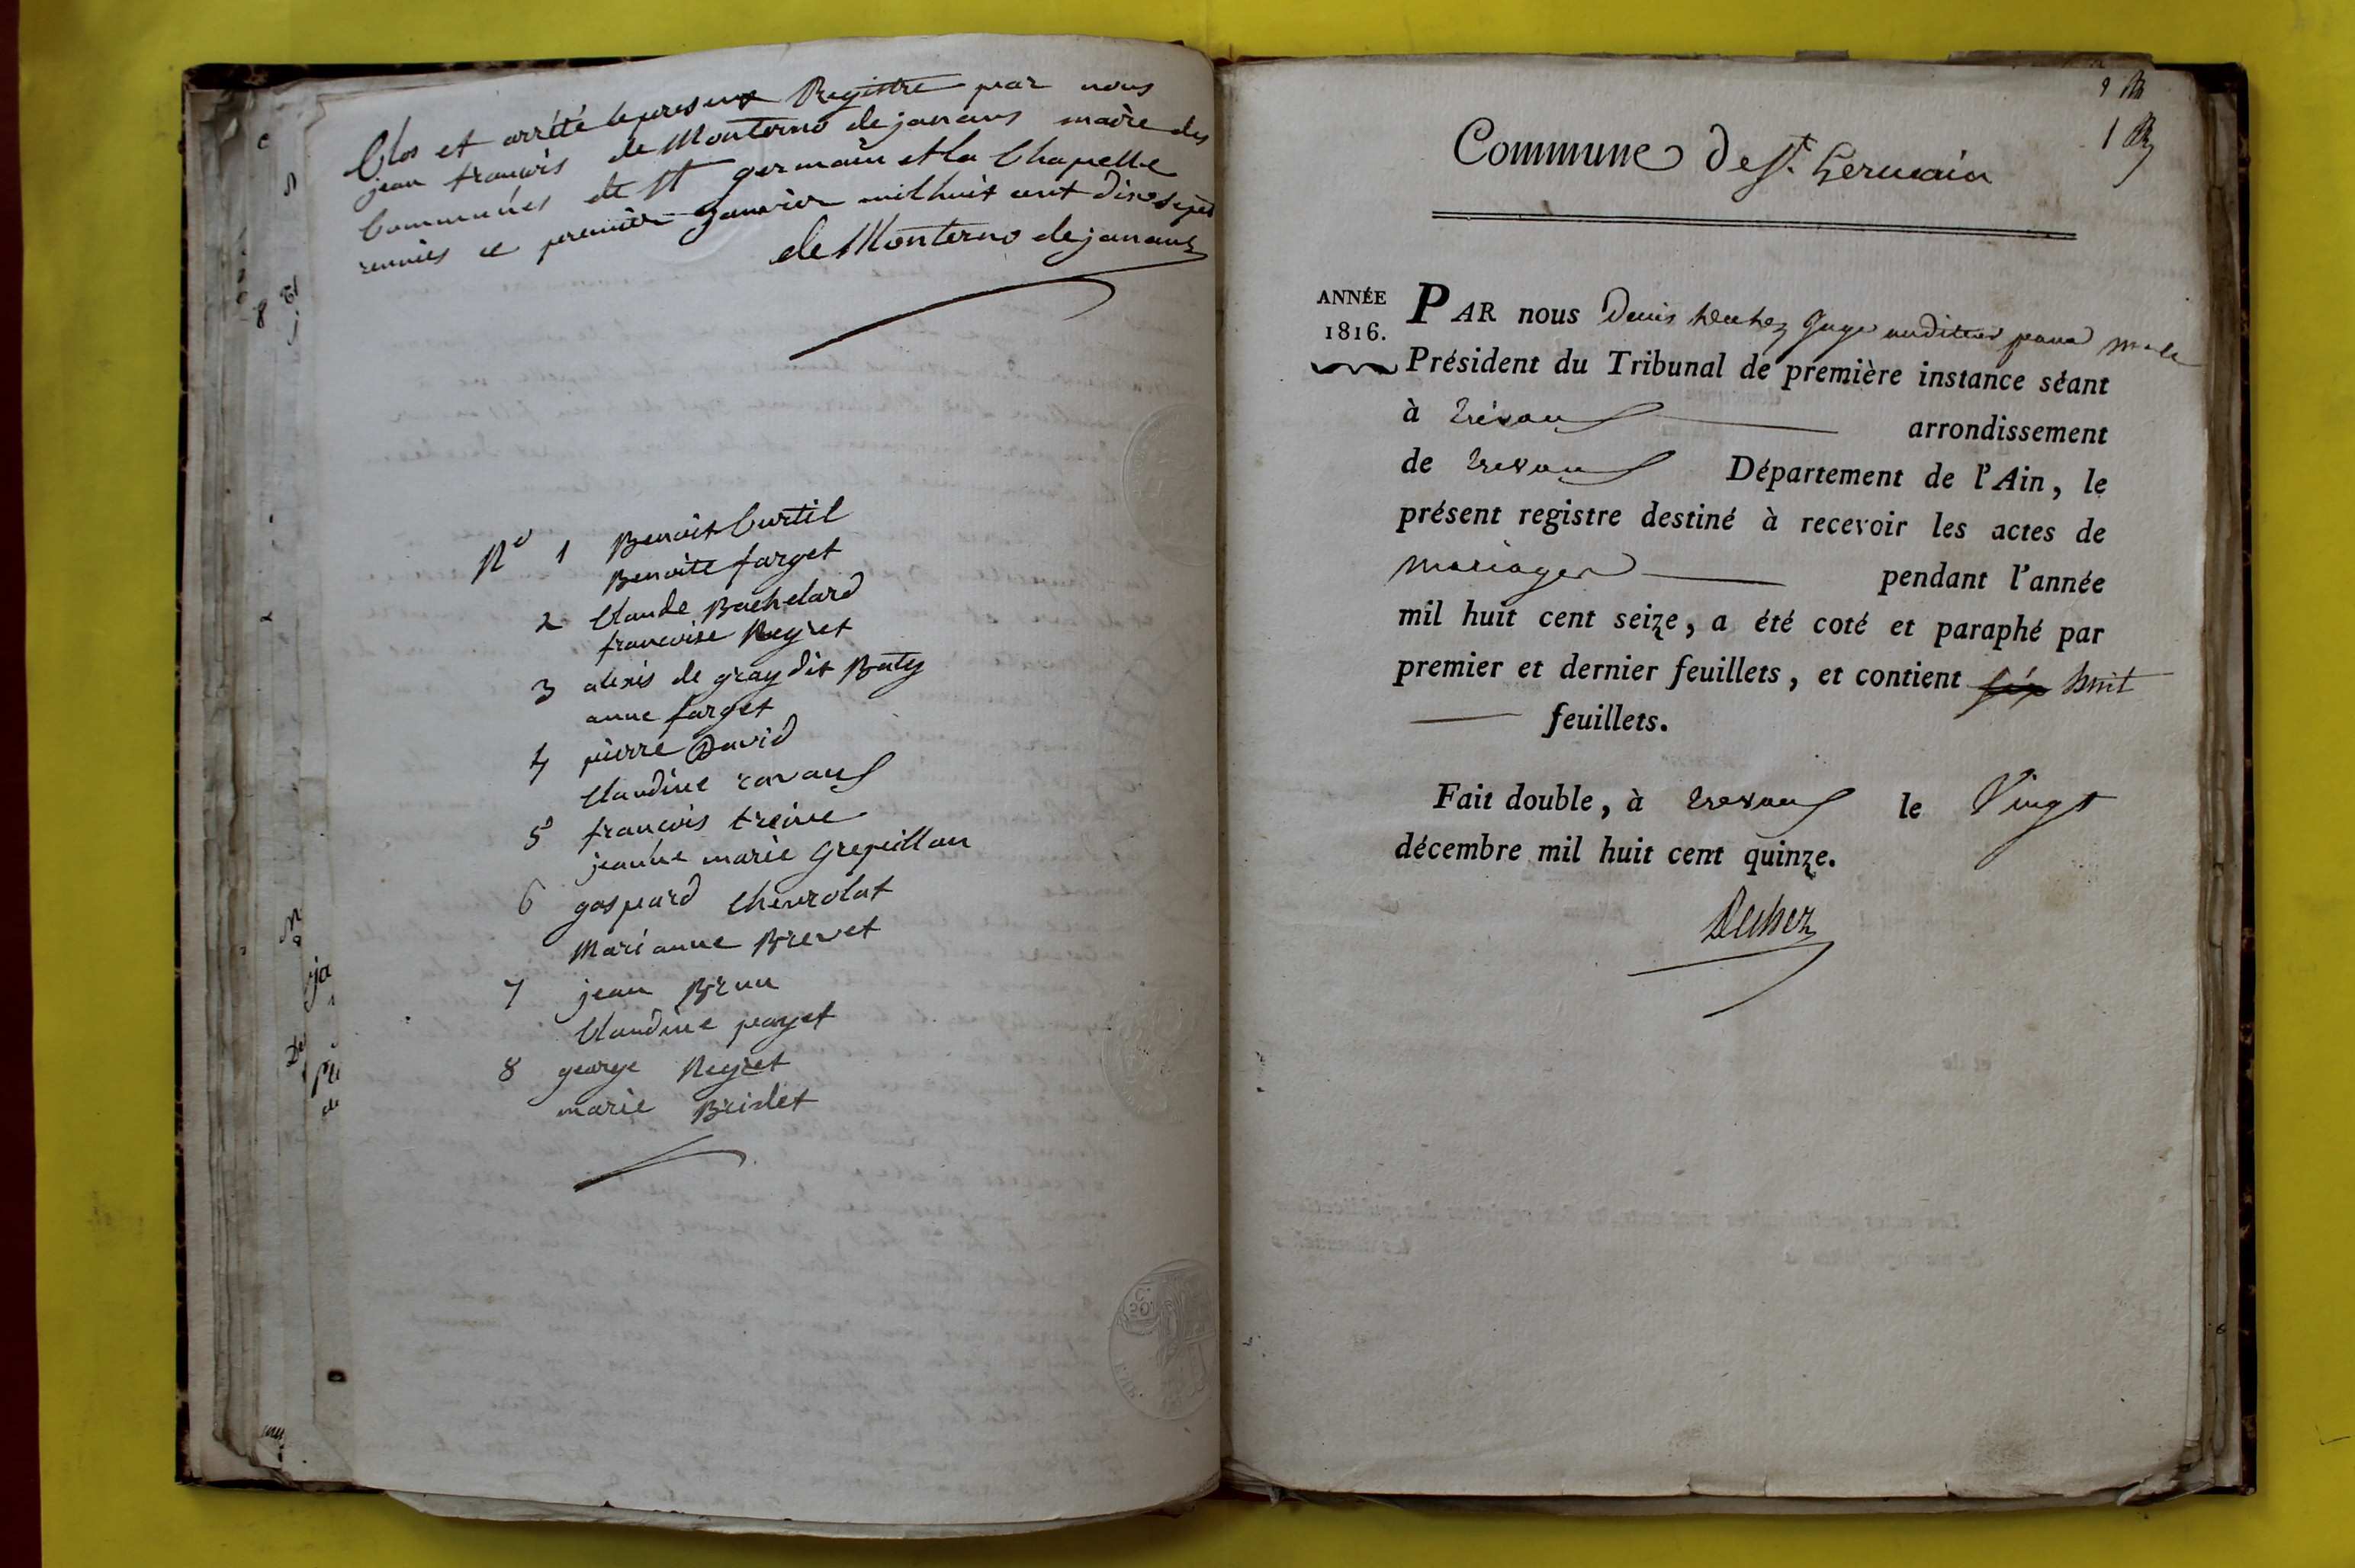 Clos et arrêté le present Registre par nous
jean francois de Monterno dejanans maire des
Communes de St germain et la Chapelle
reunies ce premier janvier mil huit cent dix sept
de Monterno dejanans
No 1 Benoit Curtil
Benoite farget
2 Claude Bachelard
francoise Negret
3 alexis de gray dit Baty
anne farget
4 pierre David
Claudine ravaux
5 francois treive
jeanne marie Grepillon
6 gaspard Chevrolat
Marianne Brevet
7 jean Brun
Claudine payet
8 george Negret
marie Bridet
Commune De St. Germain
ANNÉE
1816.
PAR nous Denis Juge auditeur pour Mr le
Président du Tribunal de première instance séant
à Trévoux arrondissement
de Trevoux Département de l'Ain, le
présent registre destiné à recevoir les actes de
Mariages pendant l'année
mil huit cent seize, a été coté et paraphé par
premier et dernier feuillets, et contient six huit
feuillets.
Fait double, à Trevoux le Vingt
décembre mil huit cent quinze.